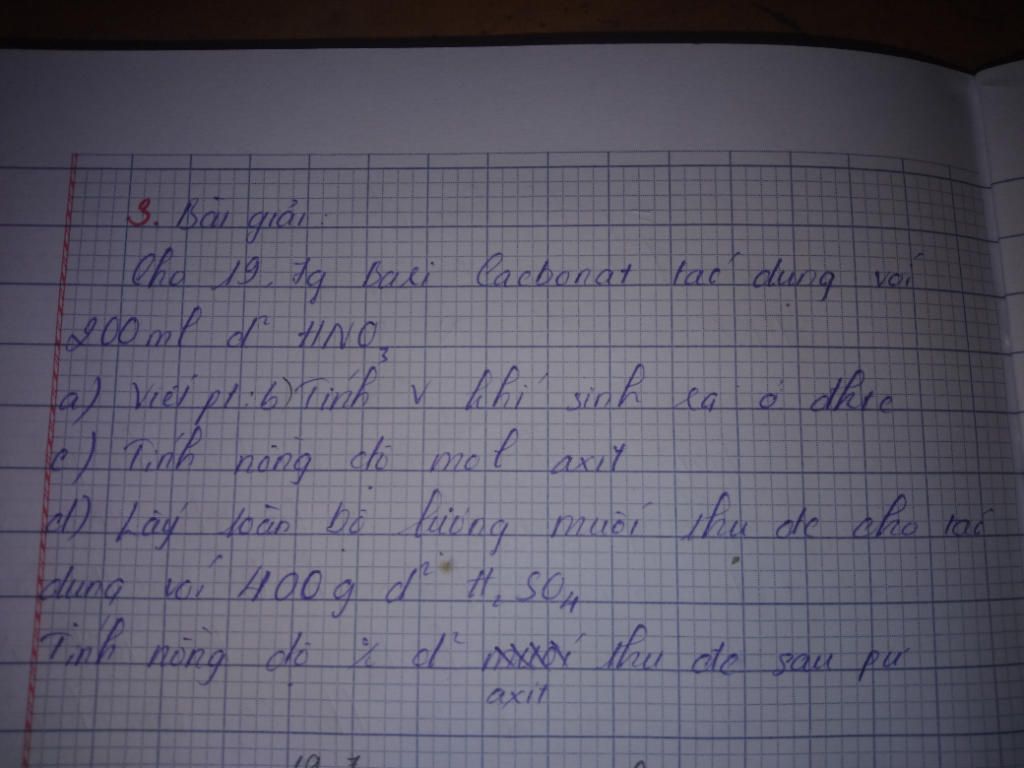 3. Bài giải:
Cho 19,7g Bari Cacbonat tác dụng với
200ml d² HNO3
a) Viết pt: b) Tính V khí sinh ra ở đktc
c) Tính nồng độ mol axit
d) Lấy toàn bộ lượng muối thu đc cho tác
dụng với 400g d² H2SO4
Tính nồng độ % d² thu đc sau pư
axit